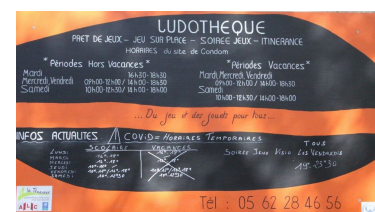 LUDOTHEQUE
PRET DE JEUX - JEU SUR PLACE - SOIREE JEUX - ITINERANCE
HORAIRES du site de Condom
*Périodes Hors Vacances*
Mardi 16h30-18h30
Mercredi, Vendredi 09h00-12h00/14h00-18h30
Samedi 10h00-12h30/14h00-18h00
*Périodes Vacances*
Mardi, Mercredi, Vendredi
09h00-12h00/14h00-18h30
Samedi
10h00-12h30/14h00-18h00
...Du jeu et des jouets pour tous...
INFOS ACTUALITES COVID = HORAIRES TEMPORAIRES
SCOLAIRE VACANCES
LUNDI
MARDI
MERCREDI
JEUDI
VENDREDI
SAMEDI
TOUS
SOIREE JEUX VISIO LES VENDREDIS
Tél : 05 62 28 46 56